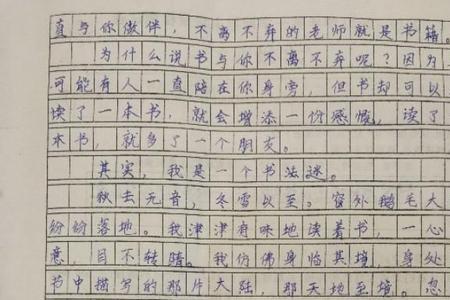 直与你做伴，不离不弃的老师就是书籍。
为什么说书与你不离不弃呢？因为
可能有人一直陪在你身旁，但书却可以
读了一本书，就会增添一份感慨，读了
本书，就多了一个朋友。
其实，我是一个书法迷。
秋去无音，冬雪以至。窗外鹅毛大
纷纷落地。我津津有味地读着书，一心
意，目不转睛。我仿佛身临其境，身处
书中描写的那片大陆，那天地至境。忽